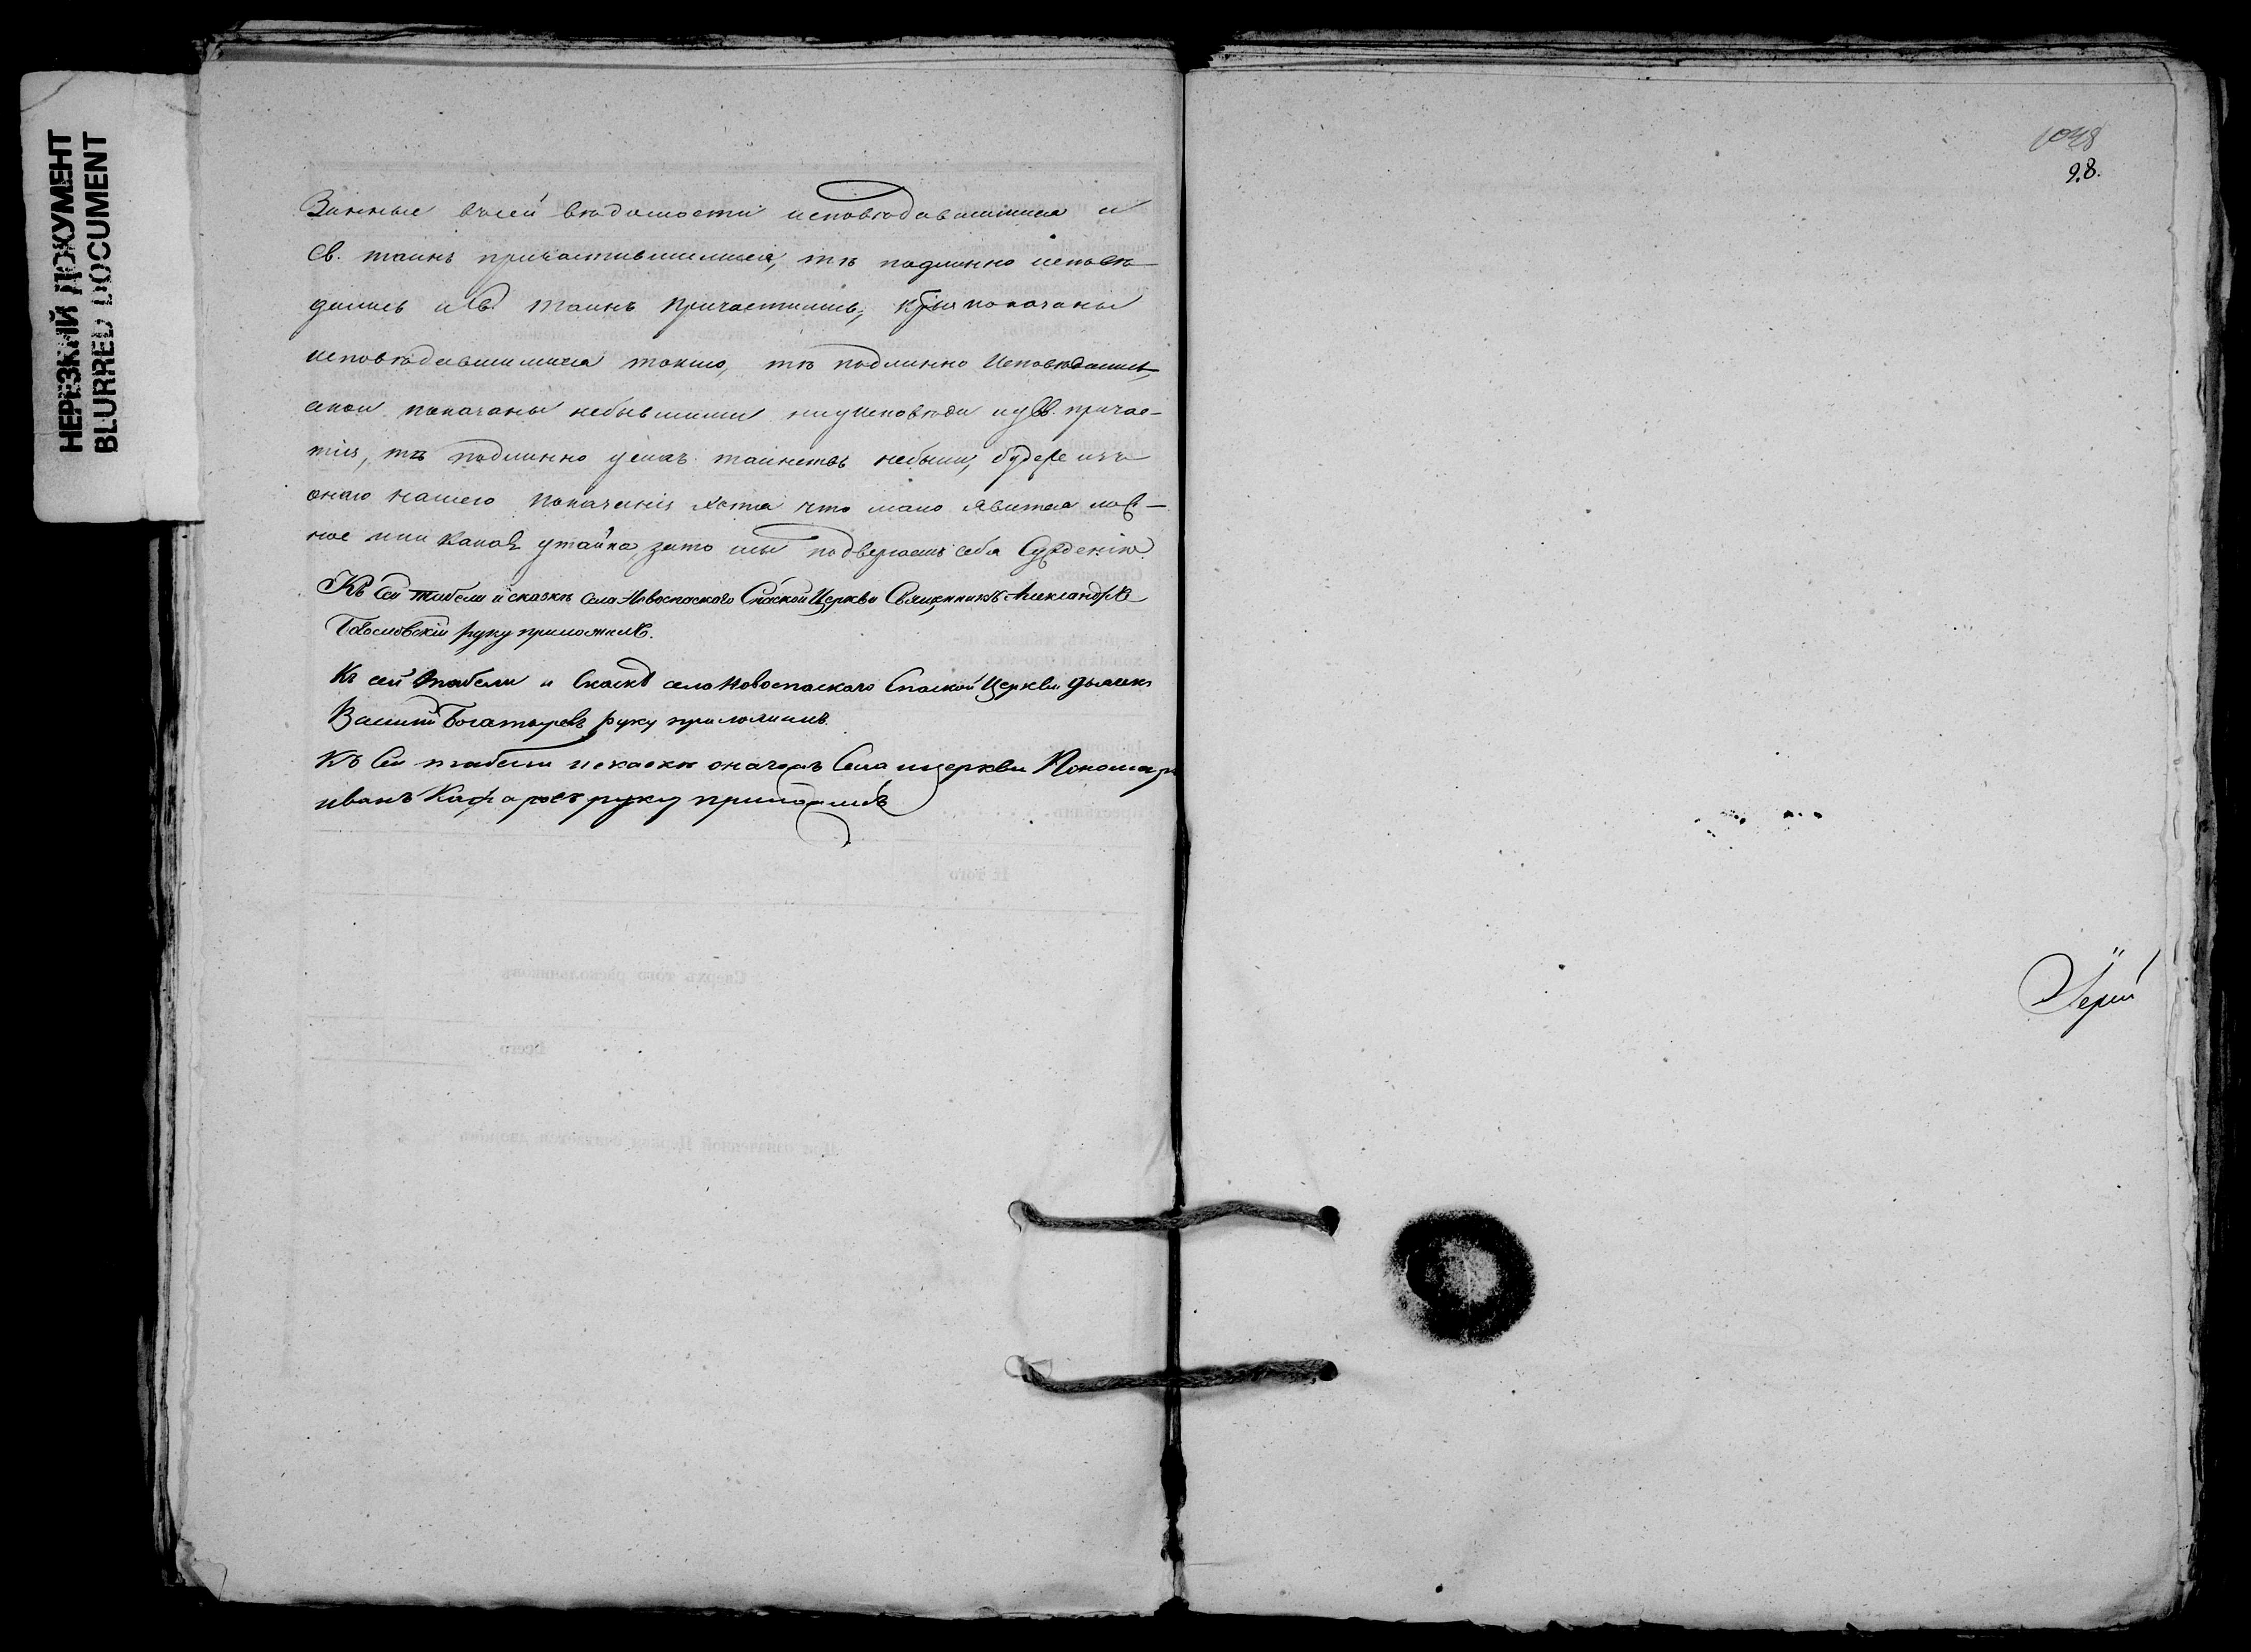 НЕРЕЗКИЙ ДОКУМЕНТ
BLURRED DOCUMENT
Занные въсей вѣдомости исповѣдавшимися и
Св. таинъ причастившимися, тѣ подлинно исповѣ-
дались и Св. Таинъ причастились; кои показаны
исповѣдавшимися токмо, тѣ подлинно Исповѣдались,
акои показаны небывшими ниуисповѣди иуСв. причас-
тія, тѣ подлинно усихъ таинствъ небыли, будеже изъ
онаго нашего показанія хотя что мало явится лож-
ное или какая утайка, зато мы подвергаемъ себя Сужденію.
Къ Сей табели и сказкѣ села Новоспаского Спаской Церкви Священникъ Александръ
Боголовскій руку приложилъ.
Къ сей табели и Сказкѣ села Новоспаскаго Спаской Церкви дьячекъ
Василій Богатыревъ руку приложилъ.
Къ Сей табели искаски означеннаго Села ицеркви Пономарь
иванъ Кафаровъ руку приложилъ
1048
98.
Іерей